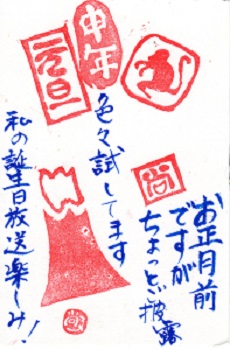 申年
お正月前
ですが
ちょっとご披露
尚
色々試してます
私の誕生日放送楽しみ!
尚